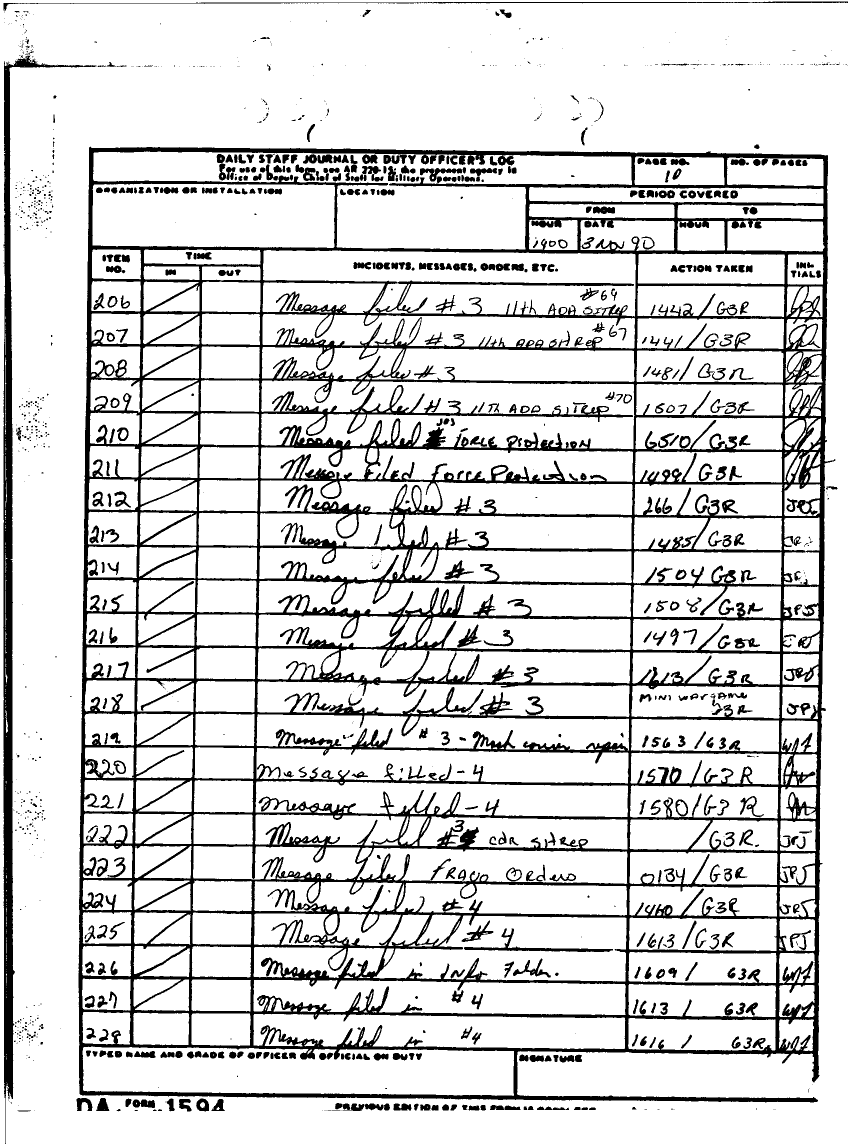 DAILY STAFF JOURNAL OR DUTY OFFICER'S LOG
For use of this form, see AR 220-15; the proponent agency is
Office of Deputy Chief of Staff for Military Operations.
PAGE NO.
10
NO. OF PAGES
ORGANIZATION OR INSTALLATION
LOCATION
PERIOD COVERED
FROM
TO
HOUR
DATE
HOUR
DATE
1900
3 Nov 90
ITEM NO.
TIME
IN
OUT
INCIDENTS, MESSAGES, ORDERS, ETC.
ACTION TAKEN
INI-TIALS
206 Message filed #3 11th ADA SITREP #69 1442/G3R
207 Message filed #3 11th ADA SITREP #67 1441/G3R
208 Message filed #3 1481/G3R
209 Message filed #3 11th ADA SITREP #70 1507/G3R
210 Message filed Force Protection 6510/G3R
211 Message Filed Force Protection 1499/G3R
212 Message filed #3 266/G3R JPJ
213 Message filed #3 1485/G3R JPJ
214 Message filed #3 1504 G3R JPJ
215 Message filled #3 1508/G3R JPJ
216 Message filed #3 1497/G3R JPJ
217 Message filed #3 1613/G3R JPJ
218 Message filed #3 MINI WARGAME G3R JPJ
219 Message filed #3 - courier repair 1563/G3R
220 Message filled-4 1570/G3R
221 Message filled-4 1580/G3R
222 Message filed #3 CDR SITREP /G3R. JPJ
223 Message filed Frago Orders 0134/G3R JPJ
224 Message filed #4 1460/G3R JPJ
225 Message filed #4 1613/G3R JPJ
226 Message filed in Info Folder. 1609/ G3R
227 Message filed in #4 1613/ G3R
228 Message filed in #4 1616/ G3R
TYPED NAME AND GRADE OF OFFICER OR OFFICIAL ON DUTY
SIGNATURE
DA FORM 1594
PREVIOUS EDITION OF THIS FORM IS OBSOLETE